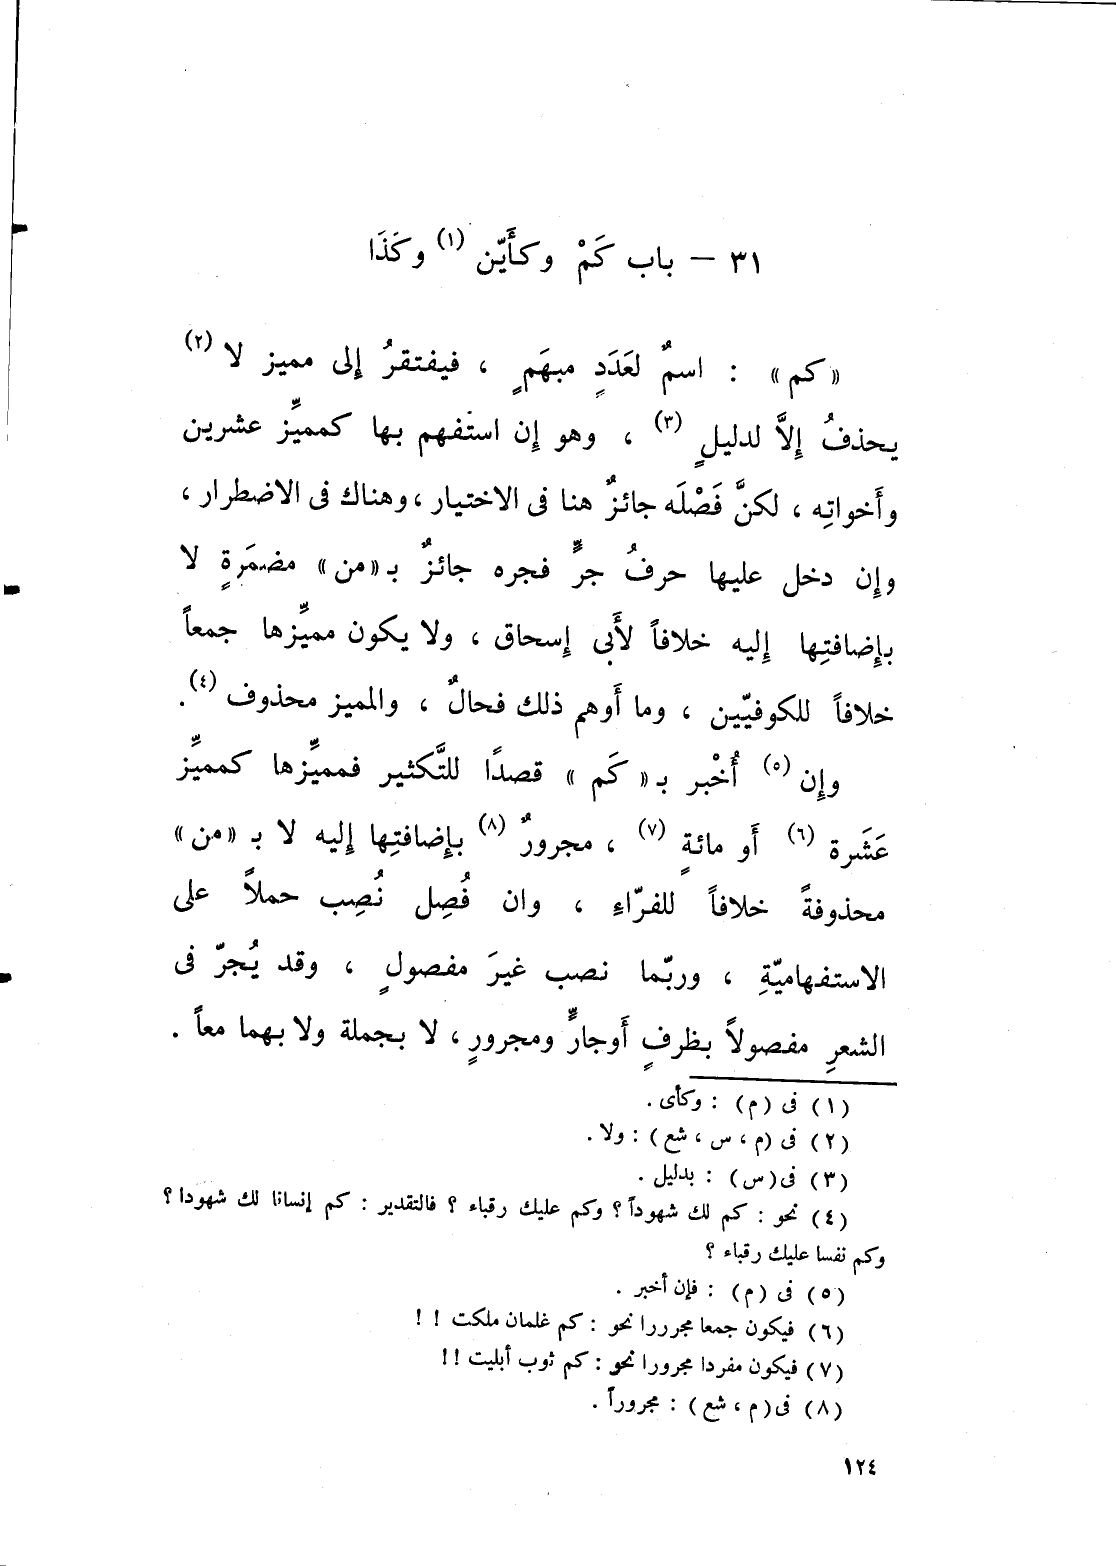 ٣١ – باب كَمْ وكأَيّن (١) وكَذَا
«كم» : اسمٌ لعَدَدٍ مبهَمٍ ، فيفتقرُ إلى مميز لا (٢)
يحذفُ إلاَّ لدليلٍ (٣) ، وهو إن استفهم بها كمميِّز عشرين
وأخواتِه ، لكنَّ فَصْلَه جائزٌ هنا فى الاختيار ، وهناك فى الاضطرار ،
وإن دخل عليها حرفُ جرٍّ فجره جائزٌ بـ«من» مضمَرةٍ لا
بإضافتِها إليه خلافاً لأَبى إسحاق ، ولا يكون مميِّزها جمعاً
خلافاً للكوفيّين ، وما أَوهم ذلك فحالٌ ، والمميز محذوف (٤).
وإن (٥) أُخْبر بـ« كَم » قصدًا للتَّكثير فمميِّزها كمميِّز
عَشَرة (٦) أَو مائةٍ (٧) ، مجرورٌ (٨) بإضافتِها إليه لا بـ «من»
محذوفةً خلافاً للفرّاءِ ، وان فُصِل نُصِب حملاً على
الاستفهاميّةِ ، وربّما نصب غيرَ مفصولٍ ، وقد يُجرّ فى
الشعرِ مفصولاً بظرفٍ أَوجارٍّ ومجرورٍ ، لا بجملة ولا بهما معاً .
(١) فى (م) : وكأى .
(٢) فى (م ، س ، شع) : ولا .
(٣) فى (س) : بدليل .
(٤) نحو : كم لك شهوداً ؟ وكم عليك رقباء ؟ فالتقدير : كم إنسانا لك شهودا ؟
وكم نفسا عليك رقباء ؟
(٥) فى (م) : فإن أخبر .
(٦) فيكون جمعا مجررا نحو : كم غلمان ملكت ! !
(٧) فيكون مفردا مجرورا نحو : كم ثوب أبليت !!
(٨) فى (م ، شع) : مجروراً .
١٢٤